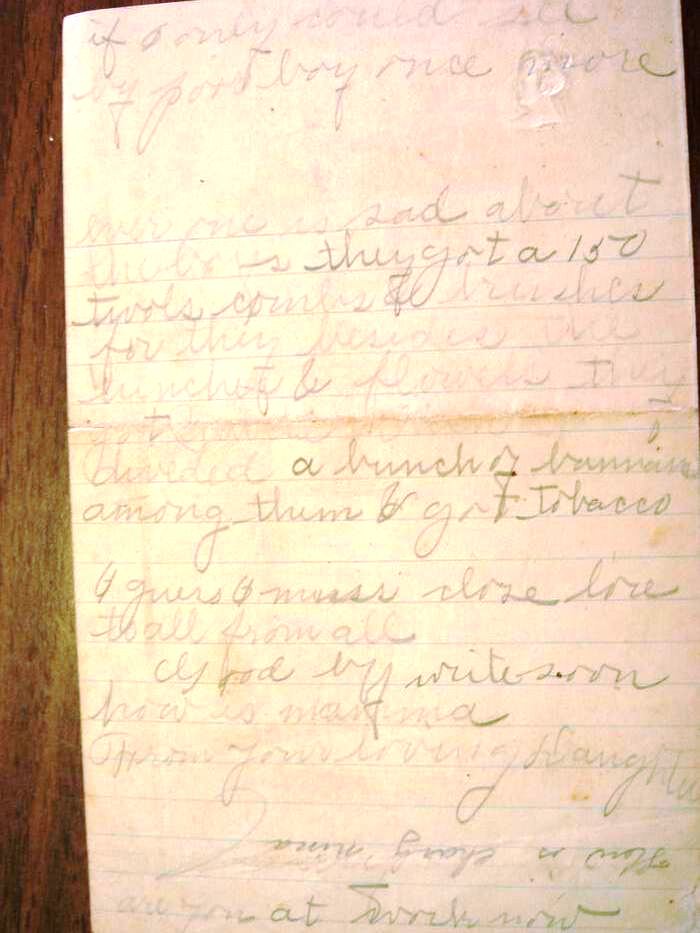 if I only could see
my poor boy once more
ever one is sad about
the boys they got a 150
twols combs & brushes
for they besides the
lunches & flowers they
got
divided a bunch of bannan
among them & got tobacco
I guess I must close love
to all from all
Good by write soon
how is mamma
From your loving Daughter
How is nina
are you at work now